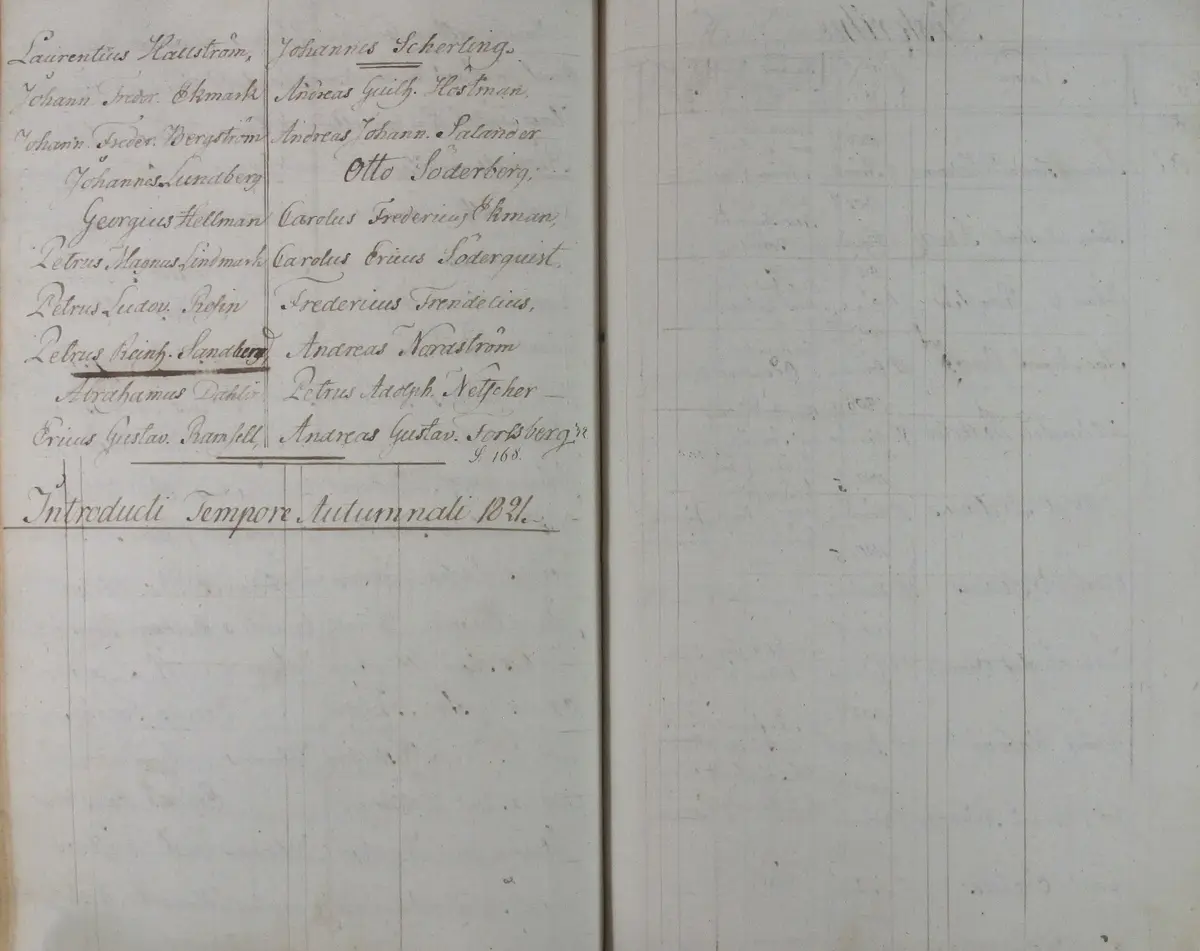 Laurentius Hallström, Johannes Scherling.
Johann Freder. Ekmark Andreas Guilh. Höstman,
Johann. Freder. Bergström Andreas Johann. Salander
Johannes Lundberg Otto Söderberg,
Georgius Hellman Carolus Fredericus Ekman,
Petrus Magnus Lindmark Carolus Ericus Söderquist,
Petrus Ludov. Rosin Fredericus Trendelius,
Petrus Reinh. Sandberg, Andreas Nordström
Abrahamus Dahl Petrus Adolph. Netscher —
Ericus Gustav. Ramsell, Andreas Gustav. Forssberg
S. 168.
Introducti Tempore Autumnali 1821.